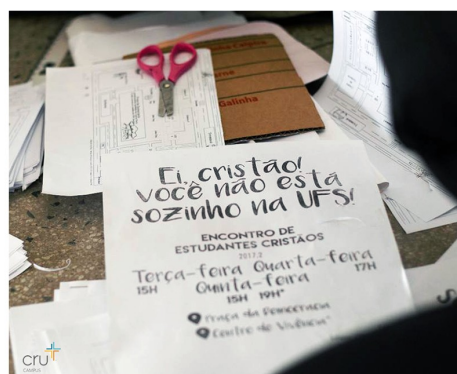 Galinha
Ei, cristão!
você não está
sozinho na UFS!
ENCONTRO DE
ESTUDANTES CRISTÃOS
2017.2
Terça-feira Quarta-feira
15H 17H
Quinta-feira
15H 19H*
Praça da Democracia
Centro de Vivência*
cru
CAMPUS